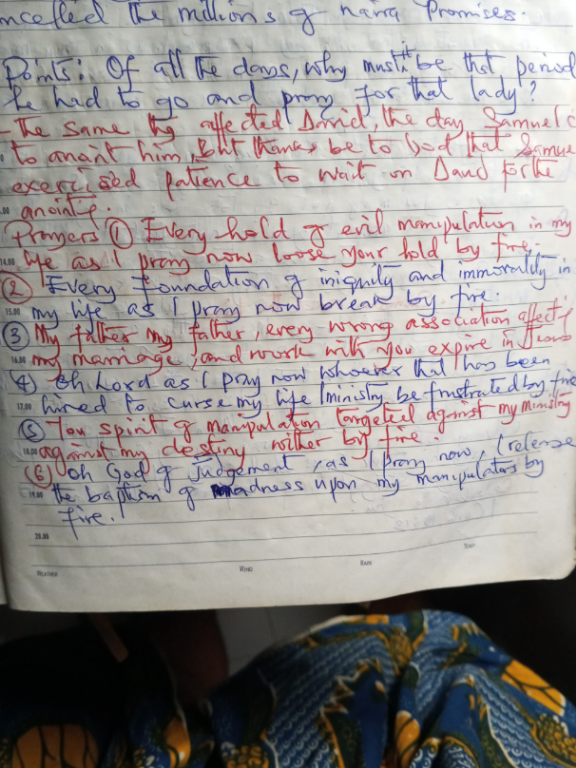 ncelled the millions of naira promises.
Points: Of all the days, why must it be that period
he had to go and pray for that lady?
- The same thg affected David, the day Samuel c
to anoint him, But thanks be to God that Samue
exercised patience to wait on David for the
anointg.
Prayers ① Every hold of evil manipulation in my
14.00 life as I pray now loose your hold by fire.
② Every Foundation of iniquity and immorality in
15.00 my life as I pray now break by fire.
③ My father my father, every wrong association affectg
16.00 my marriage, and work with you expire in Jesus
④ Oh Lord as I pray now whoever that has been
17.00 hired to curse my life / ministry be frustrated by fire
⑤ You spirit of manipulation targeted against my ministry
18.00 against my destiny wither by fire.
⑥ Oh God of Judgement, as I pray now, I release
19.00 the baptism of madness upon my manipulators by
fire.
20.00
WEATHER WIND RAIN